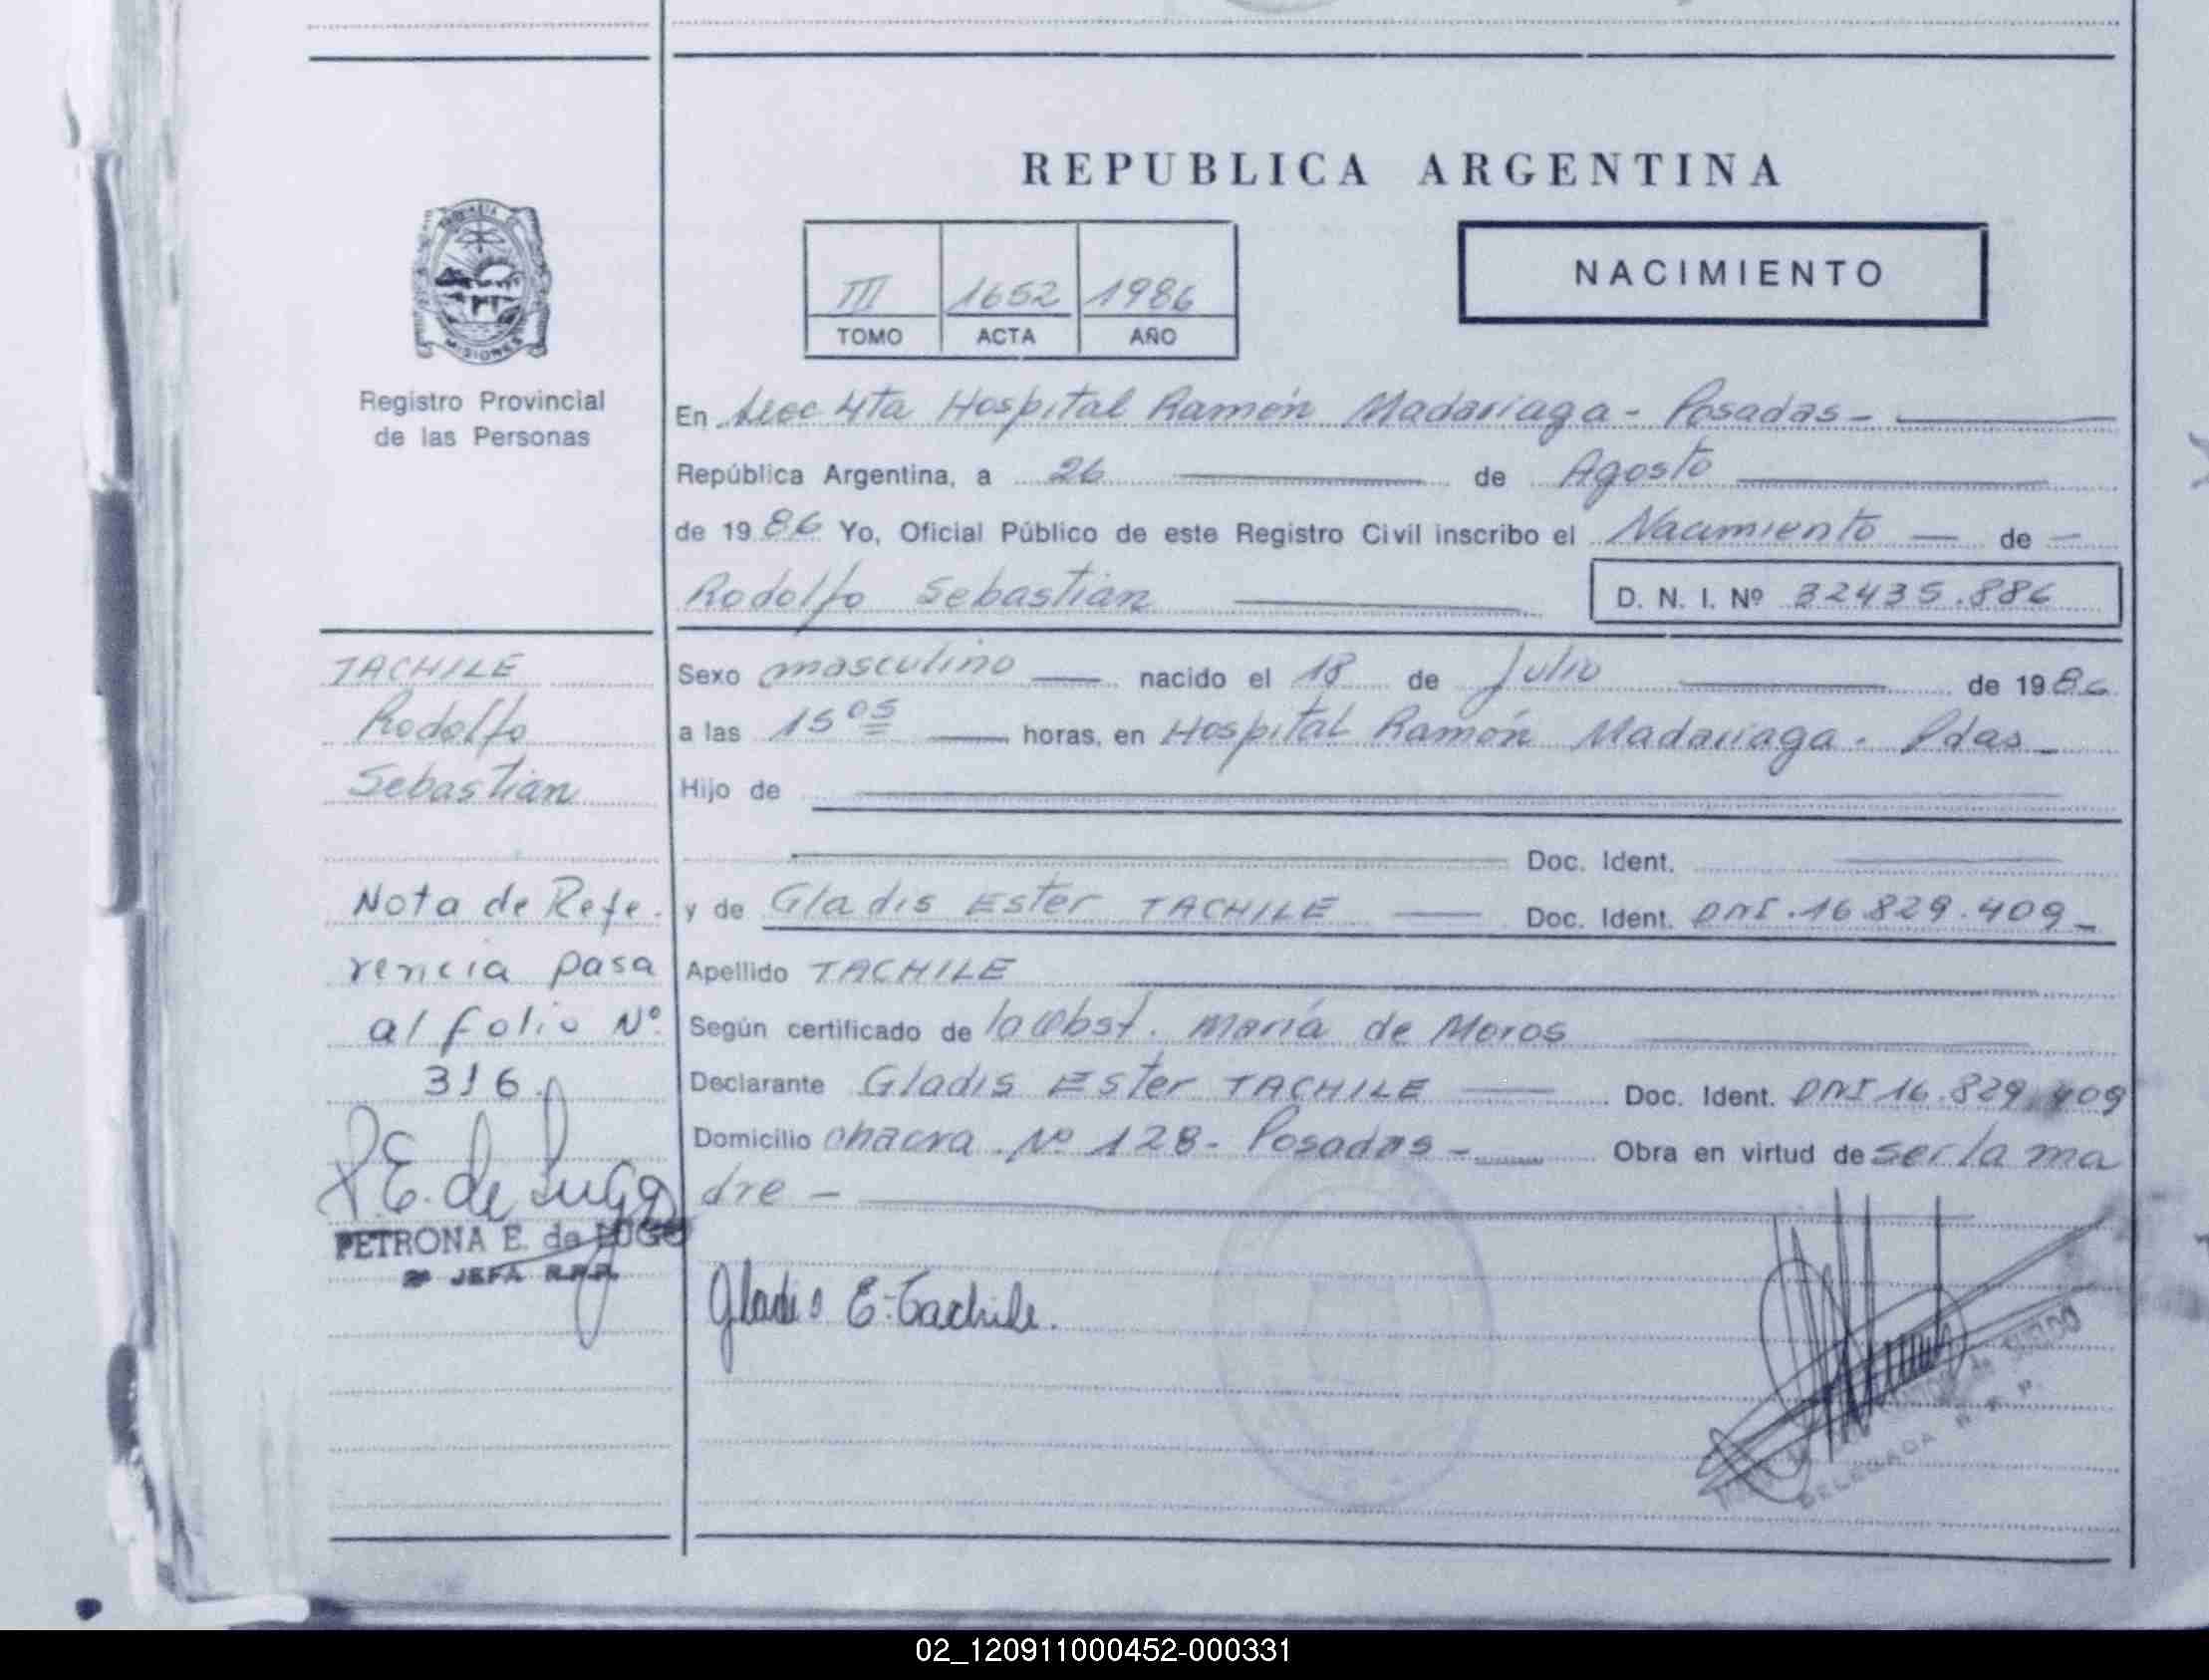 REPUBLICA ARGENTINA
NACIMIENTO
III 1652 1986
TOMO ACTA AÑO
MISIONES
Registro Provincial
de las Personas
En Secc 4ta Hospital Ramón Madariaga - Posadas -
República Argentina, a 26 de Agosto
de 1986 Yo, Oficial Público de este Registro Civil inscribo el Nacimiento de
Rodolfo Sebastián D. N. I. Nº 32435.886
TACHILE
Rodolfo
Sebastián
Sexo masculino nacido el 18 de Julio de 1986
a las 15 05 horas, en Hospital Ramón Madariaga. Pdas
Hijo de
Doc. Ident.
y de Gladis Ester TACHILE Doc. Ident. DNI. 16.829.409
Apellido TACHILE
Según certificado de la Obst. María de Moros
Declarante Gladis Ester TACHILE Doc. Ident. DNI 16.829.409
Domicilio chacra Nº 128 - Posadas - Obra en virtud de ser la ma
dre -
Nota de Refe.
rencia pasa
al folio Nº
316.
P.E. de Lugo
PETRONA E. de LUGO
JEFA R.P.P.
Gladis E. Tachile.
DELEGADA R. P. P.
02_120911000452-000331